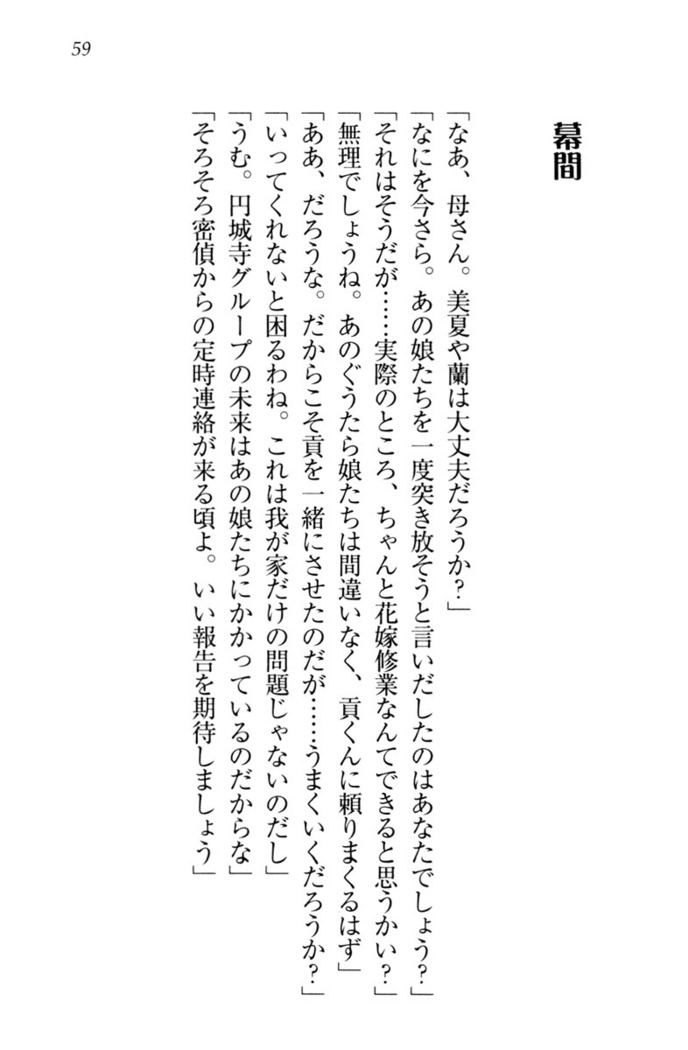 59
幕間
「なあ、母さん。美夏や蘭は大丈夫だろうか？」
「なにを今さら。あの娘たちを一度突き放そうと言いだしたのはあなたでしょう？」
「それはそうだが……実際のところ、ちゃんと花嫁修業なんてできると思うかい？」
「無理でしょうね。あのぐうたら娘たちは間違いなく、貢くんに頼りまくるはず」
「ああ、だろうな。だからこそ貢を一緒にさせたのだが……うまくいくだろうか？」
「いってくれないと困るわね。これは我が家だけの問題じゃないのだし」
「うむ。円城寺グループの未来はあの娘たちにかかっているのだからな」
「そろそろ密偵からの定時連絡が来る頃よ。いい報告を期待しましょう」